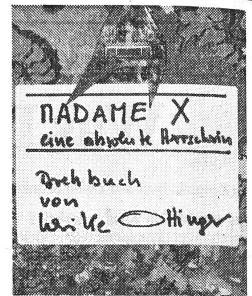 MADAME X
eine absolute Herrscherin
Drehbuch
von
Ulrike Ottinger